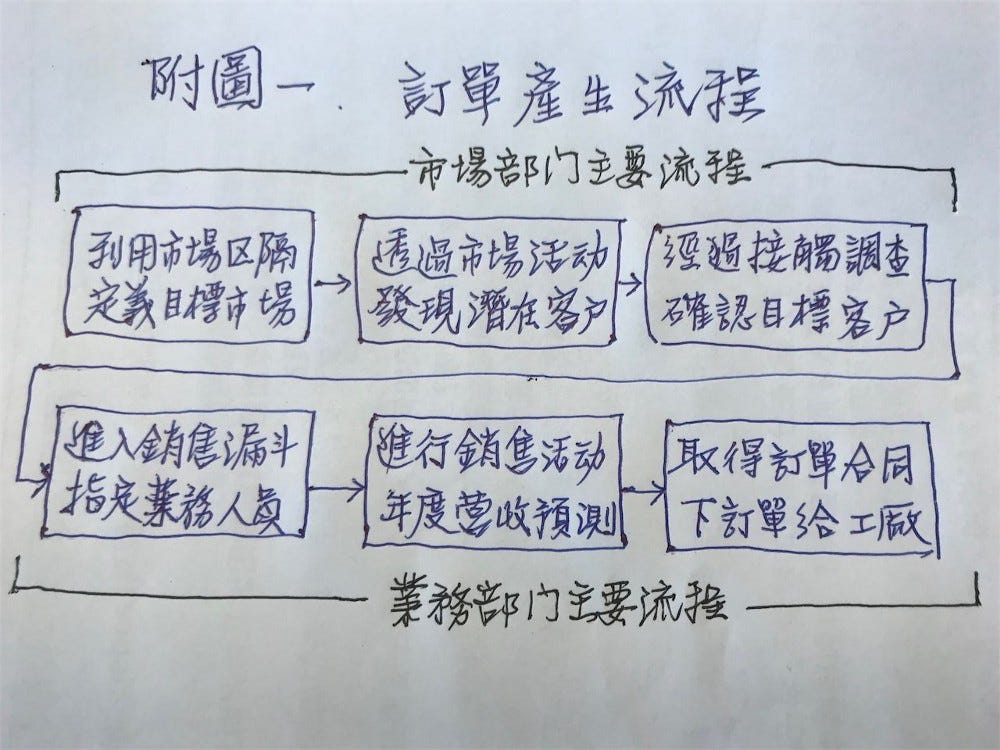 附圖一. 訂單產生流程
市場部门主要流程
利用市場区隔
定義目標市場
透過市場活动
發現潛在客户
經過接觸調查
確認目標客户
進入銷售漏斗
指定業務人員
進行銷售活动
年度营收預測
取得訂單合同
下訂單给工廠
業務部门主要流程